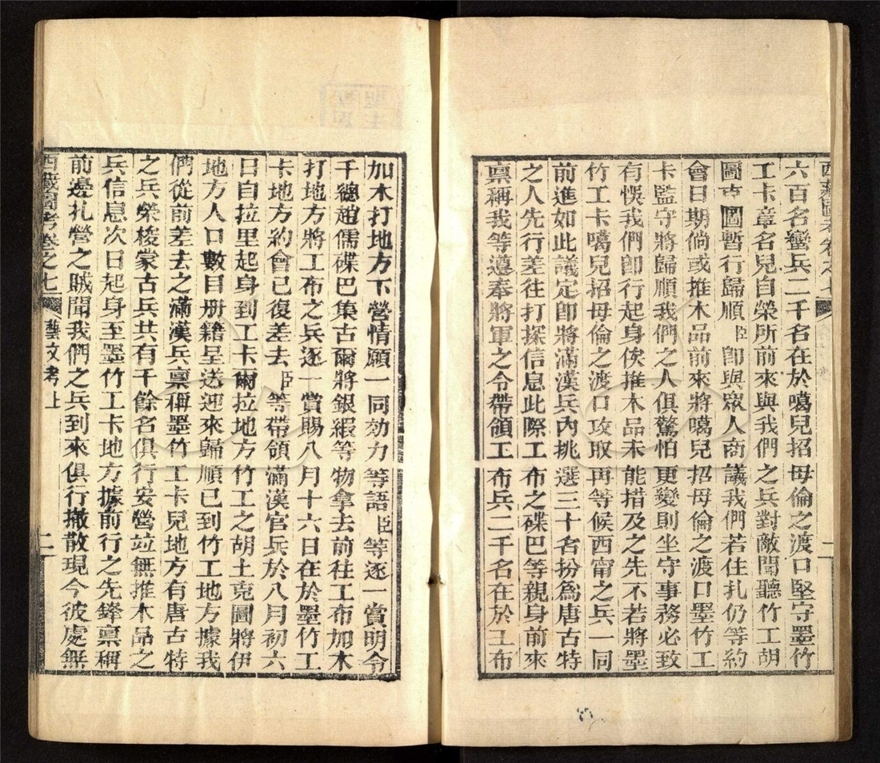 西藏圖考卷之七 二
六百名蠻兵二千名在於噶兒招毋倫之渡口堅守墨竹
工卡章名兒自榮所前來與我們之兵對敵聞聽竹工胡
圖克圖暫行歸順臣卽與眾人商議我們若住扎仍等約
會日期倘或推木品前來將噶兒招毋倫之渡口墨竹工
卡監守將歸順我們之人俱驚怕更變則坐守事務必致
有悞我們卽行起身俟推木品未能措及之先不若將墨
竹工卡噶兒招毋倫之渡口攻取再等候西甯之兵一同
前進如此議定卽將滿漢兵內挑選三十名扮為唐古特
之人先行差往打探信息此際工布之碟巴等親身前來
稟稱我等遵奉將軍之令帶領工布兵二千名在於工布
加木打地方下營情願一同効力等語臣等逐一賞明令
千總趙儒碟巴集古爾將銀緞等物拿去前往工布加木
打地方將工布之兵逐一賞賜八月十六日在於墨竹工
卡地方約會已復差去臣等帶領滿漢官兵於八月初六
日自拉里起身到工卡爾拉地方竹工之胡土克圖將伊
地方人口數目册籍呈送迎來歸順已到竹工地方據我
們從前差去之滿漢兵稟稱墨竹工卡兒地方有唐古特
之兵榮梭蒙古兵共有千餘名俱行安營竝無推木品之
兵信息次日起身至墨竹工卡地方據前行之先鋒稟稱
前邊扎營之賊聞我們之兵到來俱行撤散現今彼處無
西藏圖考卷之七 藝文考上 二